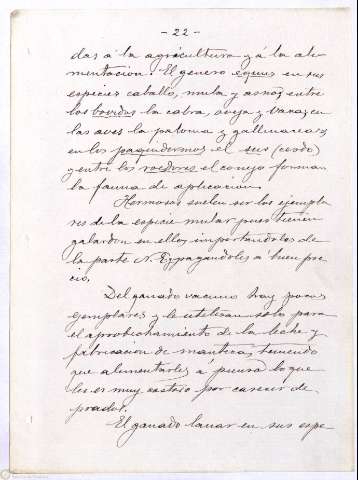 - 22 -
das á la agricultura y á la ali-
mentacion. El genero equus en sus
especies caballo, mula y asno; entre
los bovidos la cabra, oveja y vaca; en
las aves la paloma y gallinaceas,
en los paquidermos el sus (cerdo)
y entre los roedores el conejo forman
la fauna de aplicacion.
Hermosos suelen ser los ejempla
res de la especie mular pues tienen
galardon en ellos, importandolos de
la parte N. E. y pagandoles á buen pre
cio.
Del ganado vacuno hay pocos
ejemplares y le utilizan solo para
el aprobechamiento de la leche y
fabricacion de manteca, teniendo
que alimentarles a lo que
les es muy costoso por carecer de
prados.
El ganado lanar en sus espe